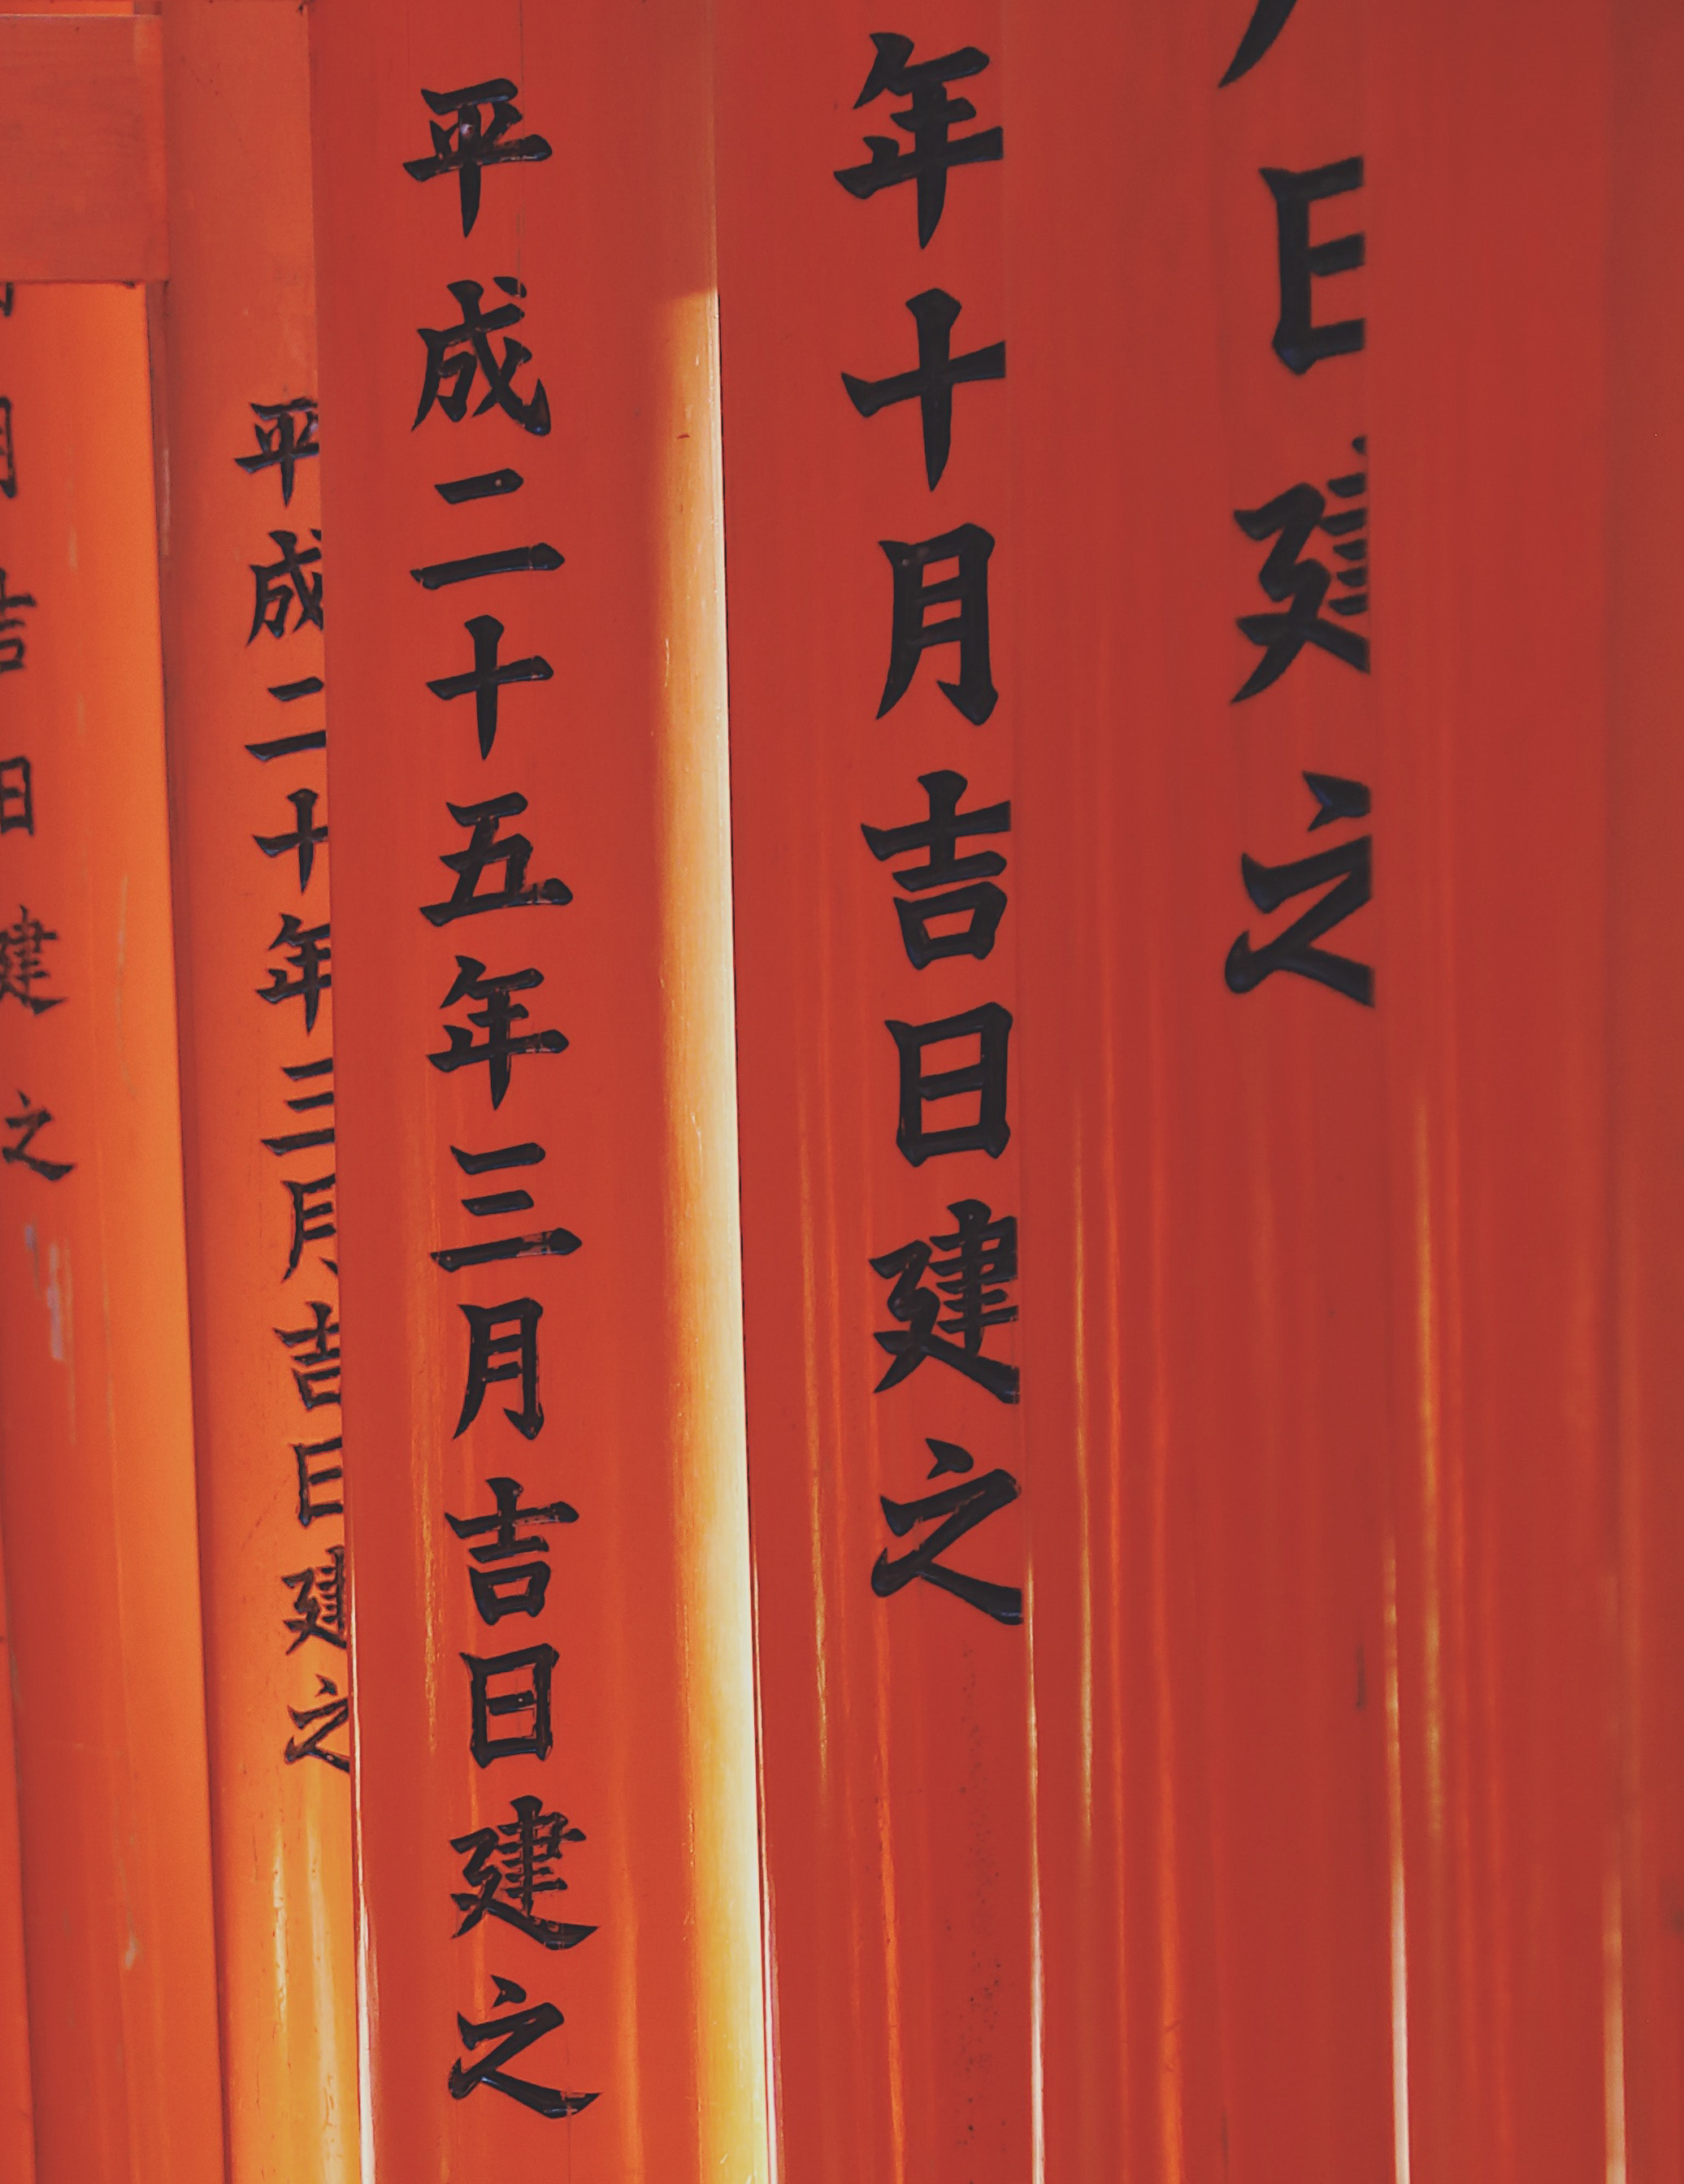 日建之
年十月吉日建之
平成二十五年三月吉日建之
平成二十年三月吉日建之
月吉日建之